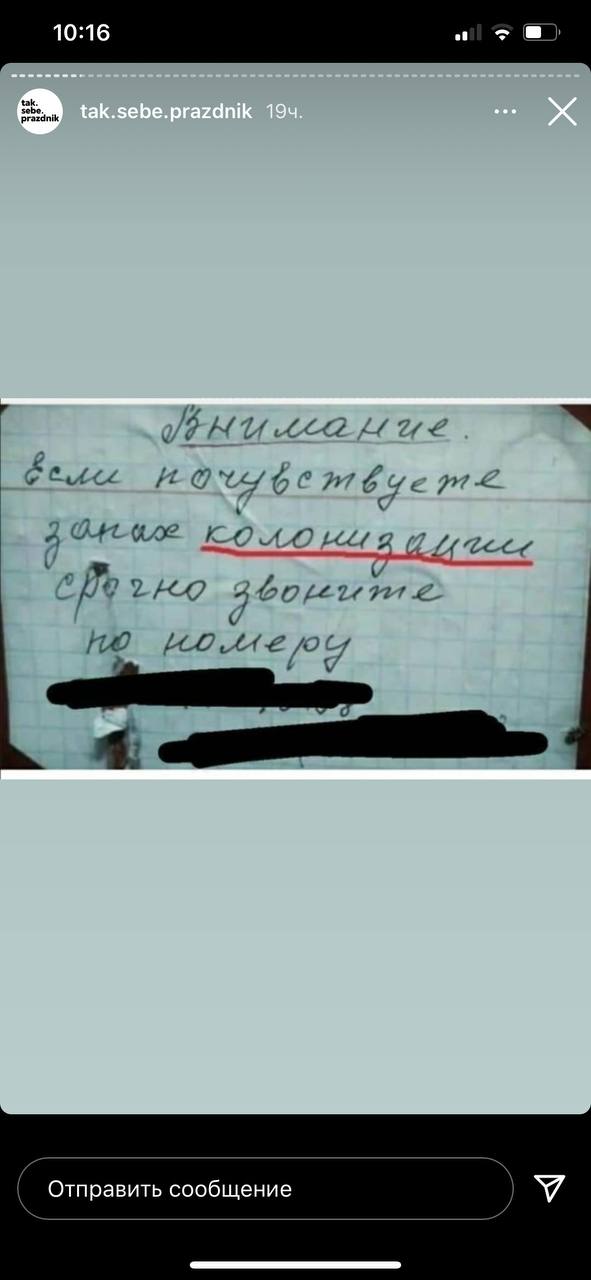 10:16
tak.
sebe.
prazdnik
tak.sebe.prazdnik 19ч.
Внимание.
Если почувствуете
запах колонизации
срочно звоните
по номеру
Отправить сообщение